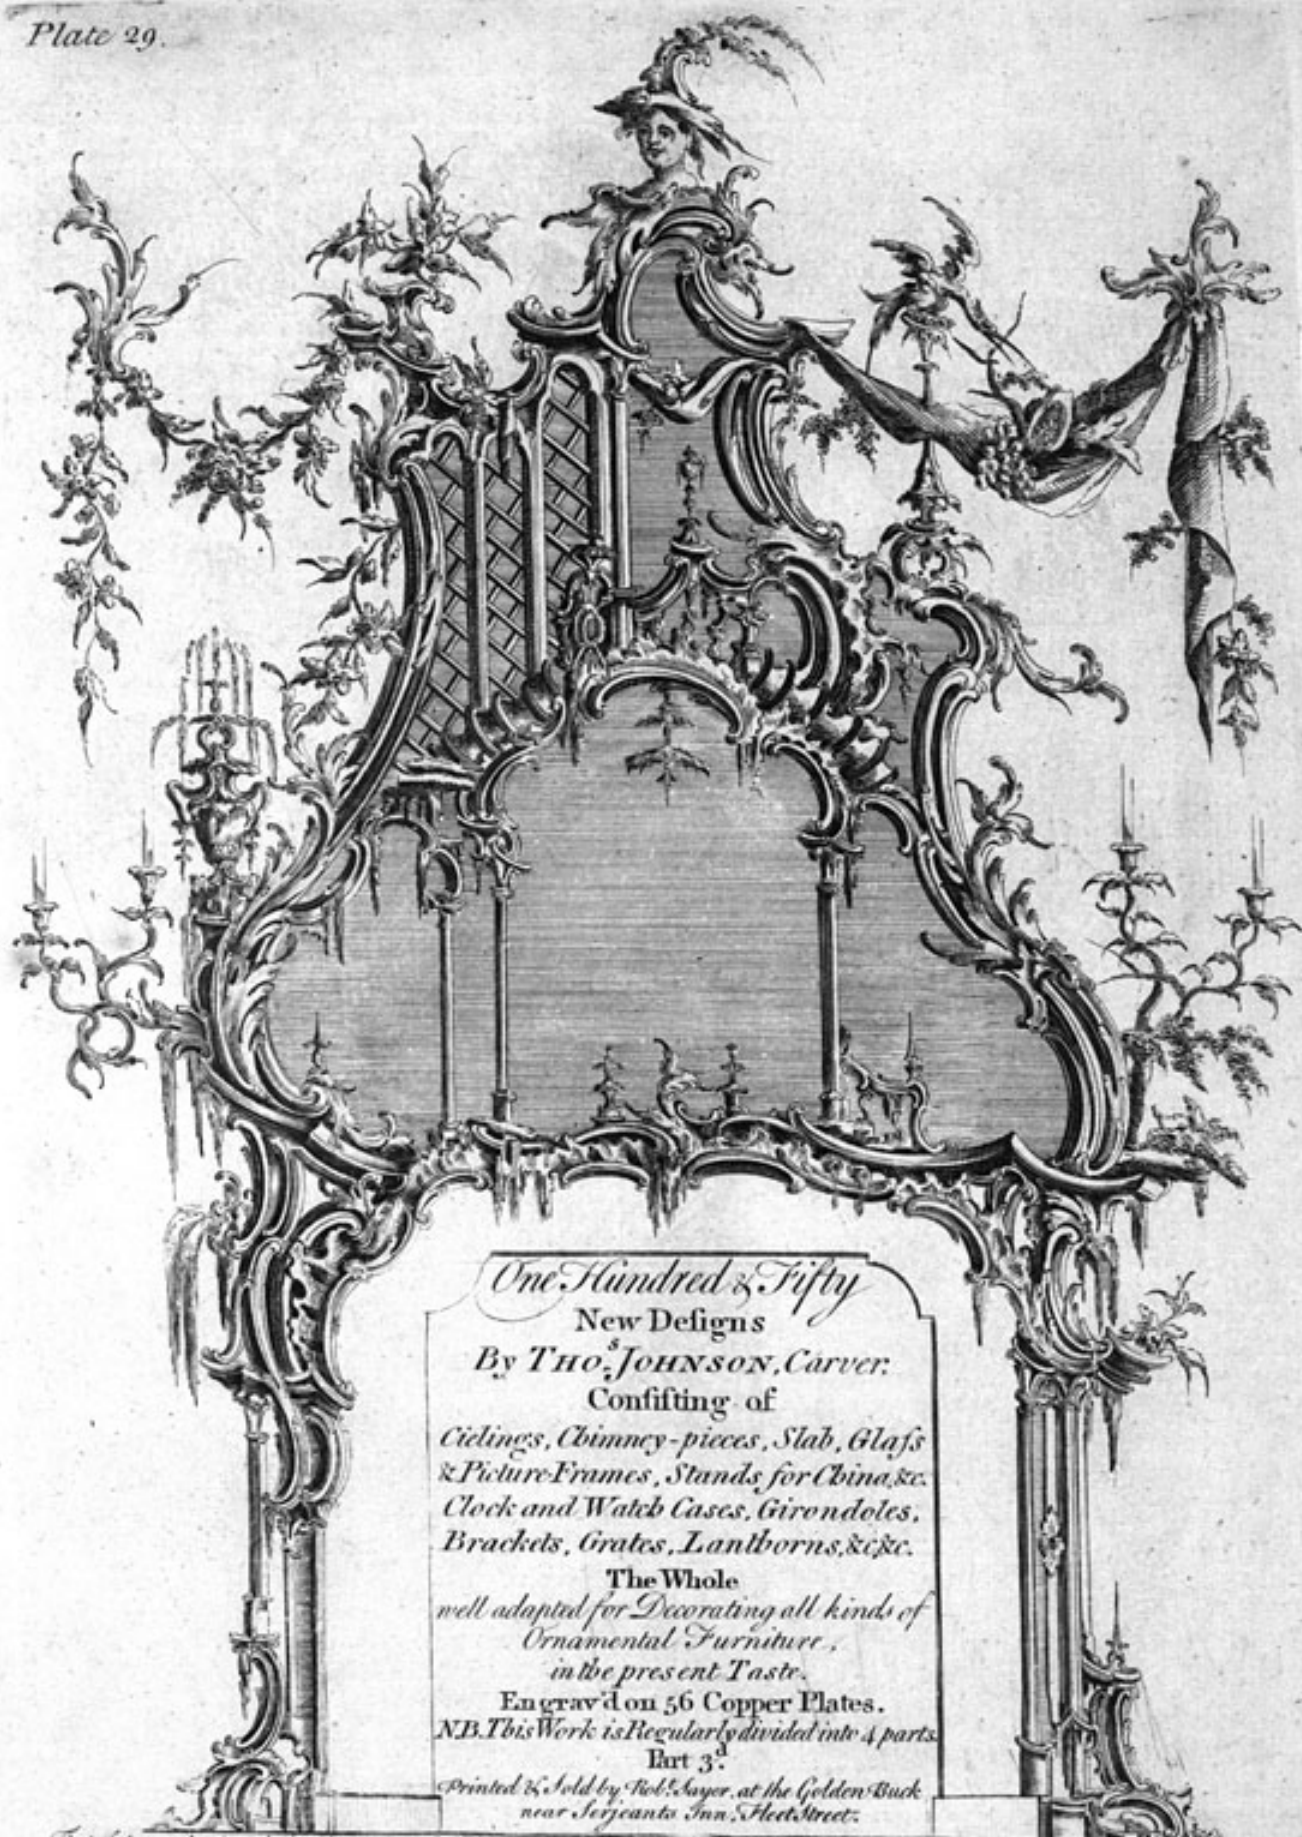 Plate 29.
One Hundred & Fifty
New Deſigns
By THO.s JOHNSON, Carver.
Conſiſting of
Cielings, Chimney-pieces, Slab, Glaſs
& Picture Frames, Stands for China, &c.
Clock and Watch Cases, Girondoles,
Brackets, Grates, Lanthorns, &c, &c.
The Whole
well adapted for Decorating all kinds of
Ornamental Furniture,
in the present Taste.
Engrav'd on 56 Copper Plates.
N.B. This Work is Regularly divided into 4 parts.
Part 3.d
Printed & Sold by Rob.t Sayer, at the Golden Buck
near Serjeants Inn, Fleet Street.